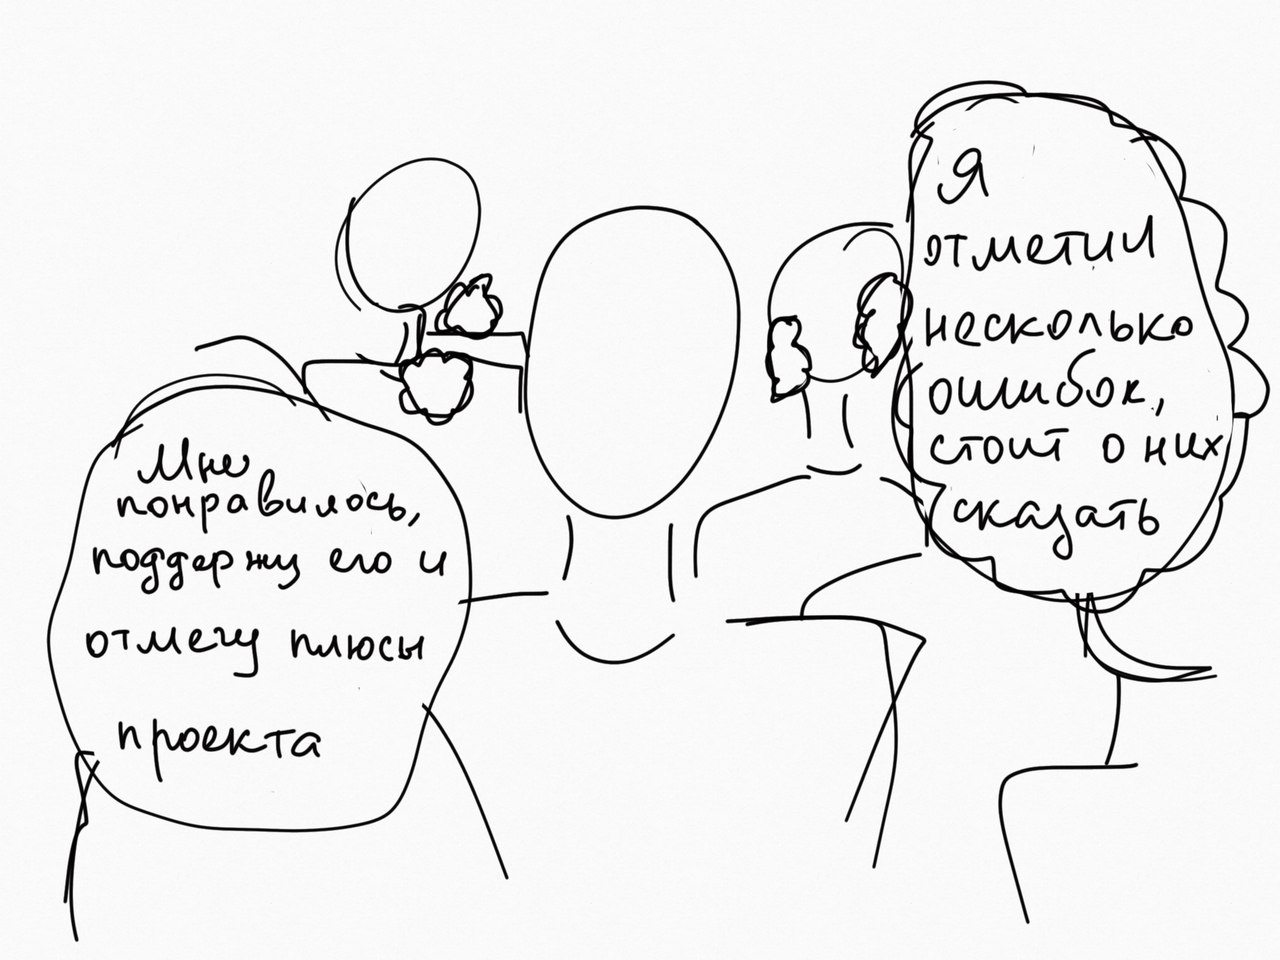 Мне
понравилось,
поддержу его и
отмечу плюсы
проекта
Я
отметил
несколько
ошибок,
стоит о них
сказать